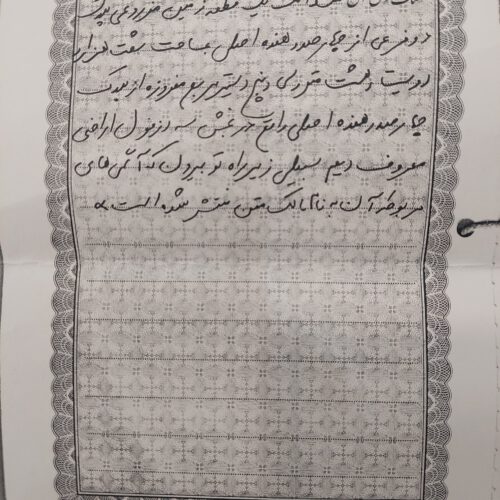 یک قطعه زمین مزروعی پلاک
دو فرعی از چهارصد و هفده اصلی بمساحت هفت هزار و
دویست و هشت متر و سی و پنج دسیمتر مربع مفروزه از پلاک
چهارصد و هفده اصلی واقع در بخش سه دزفول اراضی
معروف دیم سبیلی زیر راه تو بیرون که آگهی های
مربوطه آن به نام مالک متن منتشر شده است